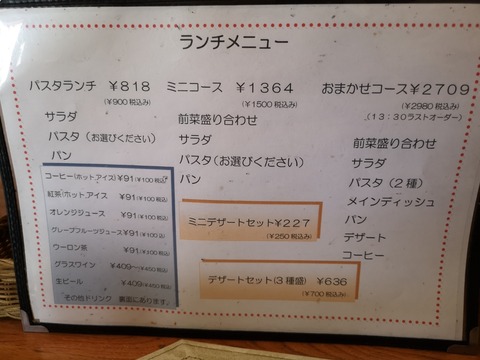 ランチメニュー
パスタランチ ￥818
(￥900税込み)
サラダ
パスタ(お選びください)
パン
コーヒー(ホット,アイス)￥91(￥100税込)
紅茶(ホット,アイス ￥91(￥100税込)
オレンジジュース ￥91(￥100税込)
グレープフルーツジュース￥91(￥100 税込)
ウーロン茶 ￥91(￥100税込)
グラスワイン ￥409～(￥450税込)
生ビール ￥409(￥450税込)
その他ドリンク 裏面にあります。
ミニコース ￥1364
(￥1500税込み)
前菜盛り合わせ
サラダ
パスタ(お選びください)
パン
ミニデザートセット￥227
(￥250税込み)
デザートセット(3種盛) ￥636
(￥700税込み)
おまかせコース￥2709
(￥2980税込み)
(13:30ラストオーダー)
前菜盛り合わせ
サラダ
パスタ(2種)
メインディッシュ
パン
デザート
コーヒー